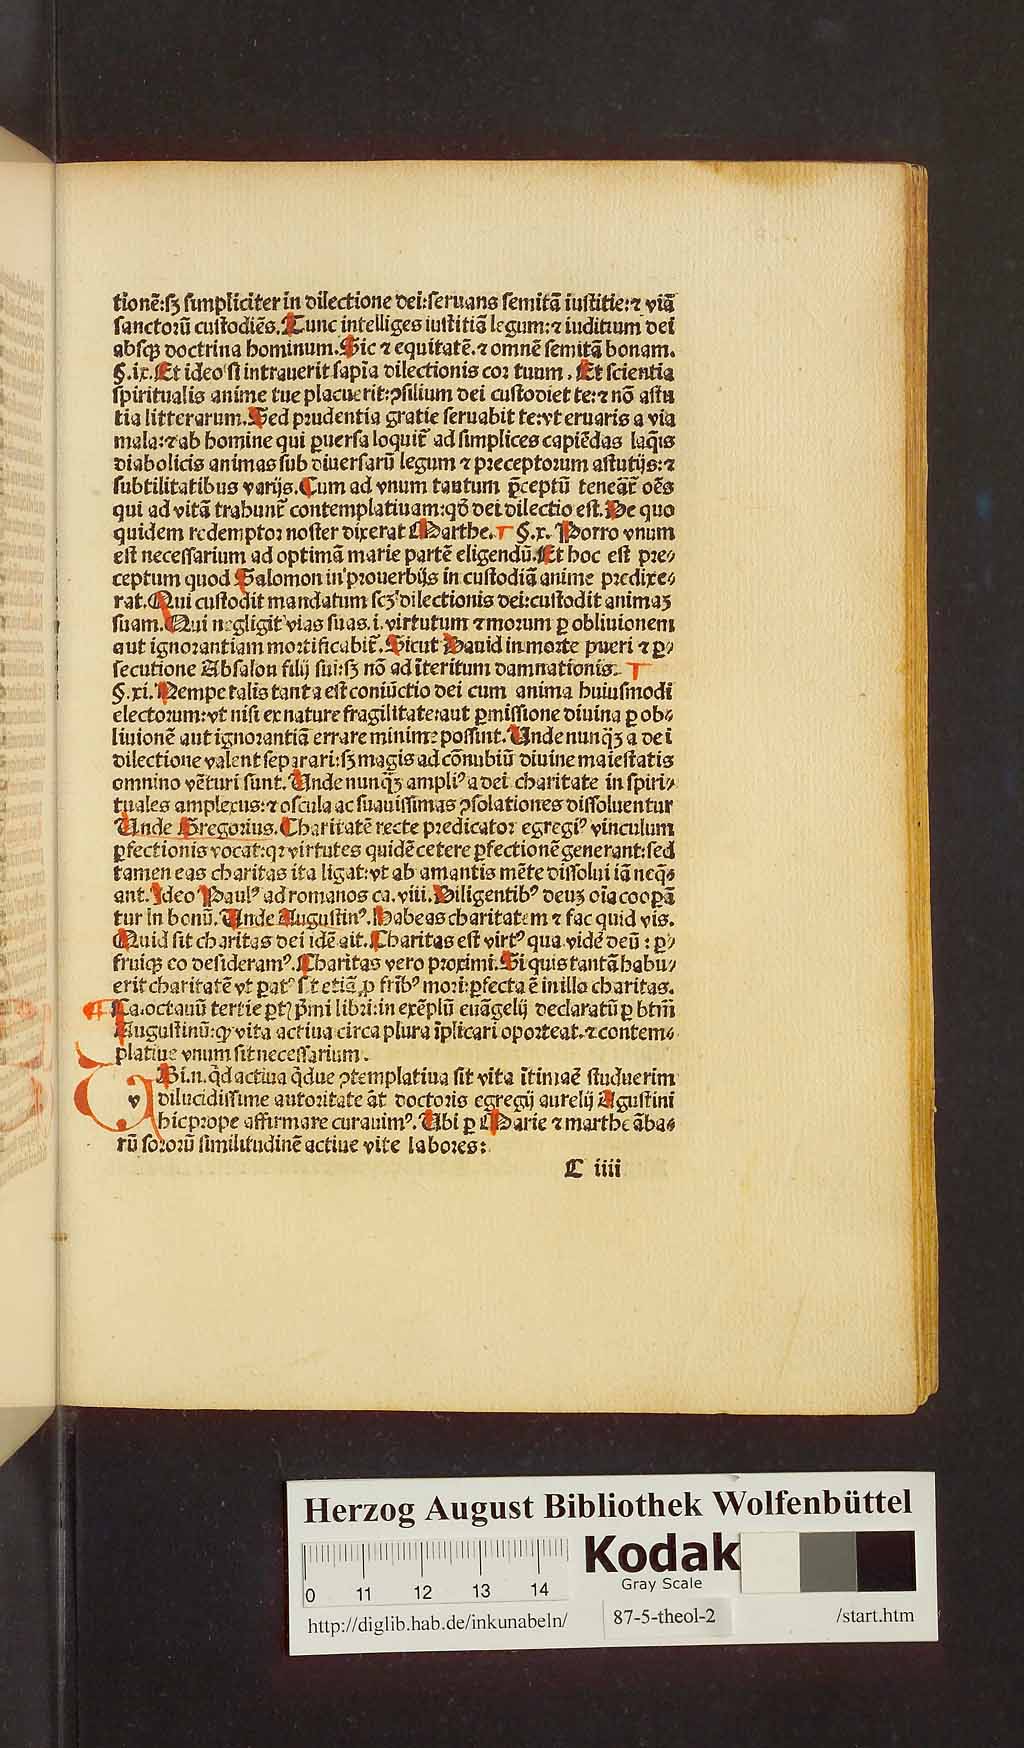 tionē:sꝫ simpliciter in dilectione dei:seruans semitā iustitie:⁊ viā
sanctorū custodiēs. Tunc intelliges iustitiā legum:⁊ iuditium dei
absqꝫ doctrina hominum. Sic ⁊ equitatē.⁊ omnē semitā bonam.
§.ix. Et ideo si intrauerit sapīa dilectionis cor tuum. Et scientia
spiritualis anime tue placuerit:ꝯsilium dei custodiet te:⁊ nō astu
tia litterarum. Sed prudentia gratie seruabit te:vt eruaris a via
mala:⁊ ab homine qui ꝑuersa loquit᷑ ad simplices capiēdas laq̄is
diabolicis animas sub diuersarū legum ⁊ preceptorum astutijs:⁊
subtilitatibus varijs. Cum ad vnum tantum p̄ceptū teneāt᷑ oēs
qui ad vitā trahunt᷑ contemplatiuam:qd̄ dei dilectio est. De quo
quidem redemptor noster dixerat Marthe. §.x. Porro vnum
est necessarium ad optimā marie partē eligendū. Et hoc est pre⸗
ceptum quod Salomon in prouerbijs in custodiā anime predixe⸗
rat. Qui custodit mandatum scꝫ dilectionis dei:custodit animaꝫ
suam. Qui negligit vias suas.i. virtutum ⁊ morum ꝑ obliuionem
aut ignorantiam mortificabit᷑. Sicut Dauid in morte pueri ⁊ ꝑ⸗
secutione Absalon filij sui:sꝫ nō ad īteritum damnationis.
§.xi. Nempe talis tanta est coniūctio dei cum anima huiusmodi
electorum:vt nisi ex nature fragilitate:aut ꝑmissione diuina ꝑ ob⸗
liuionē aut ignorantiā errare minime possint. Unde nunqꝫ a dei
dilectione valent separari:sꝫ magis ad cōnubiū diuine maiestatis
omnino vēturi sunt. Unde nunqꝫ ampliꝰ a dei charitate in spiri⸗
tuales amplexus:⁊ oscula ac suauissimas ꝯsolationes dissoluentur
Unde Gregorius. Charitatē recte predicator egregiꝰ vinculum
ꝑfectionis vocat:qꝛ virtutes quidē cetere ꝑfectionē generant:sed
tamen eas charitas ita ligat:vt ab amantis mēte dissolui iā neq̄⸗
ant. Ideo Paulꝰ ad romanos ca. viii. Diligentibꝰ deuꝫ oīa cooꝑā
tur in bonū. Unde Augustinꝰ. Habeas charitatem ⁊ fac quid vis.
Quid sit charitas dei idē ait. Charitas est virtꝰ qua vidē deū : ꝑ⸗
fruiqꝫ eo desideramꝰ. Charitas vero proximi. Si quis tantā habu⸗
erit charitatē vt ꝑatꝰ sit etiā ꝓ frībꝰ mori:ꝑfecta ē in illo charitas.
Ca. octauū tertie ꝑtꝭ p̄mi libri:in exēplū euāgelij declaratū ꝑ btm̄
Augustinū:ꝙ vita actiua circa plura īplicari oporteat.⁊ contem⸗
platiue vnum sit necessarium.
vBi.n. qd̄ actiua qd̄ue ꝯtemplatiua sit vita ītimaē studuerim
dilucidissime autoritate āt doctoris egregij aurelij Agustini
hic prope affirmare curauimꝰ. Ubi ꝑ Marie ⁊ marthe āba⸗
rū sororū similitudinē actiue vite labores:
C iiii
Herzog August Bibliothek Wolfenbüttel
0 11 12 13 14
Kodak
Gray Scale
http://diglib.hab.de/inkunabeln/
87-5-theol-2
/start.htm